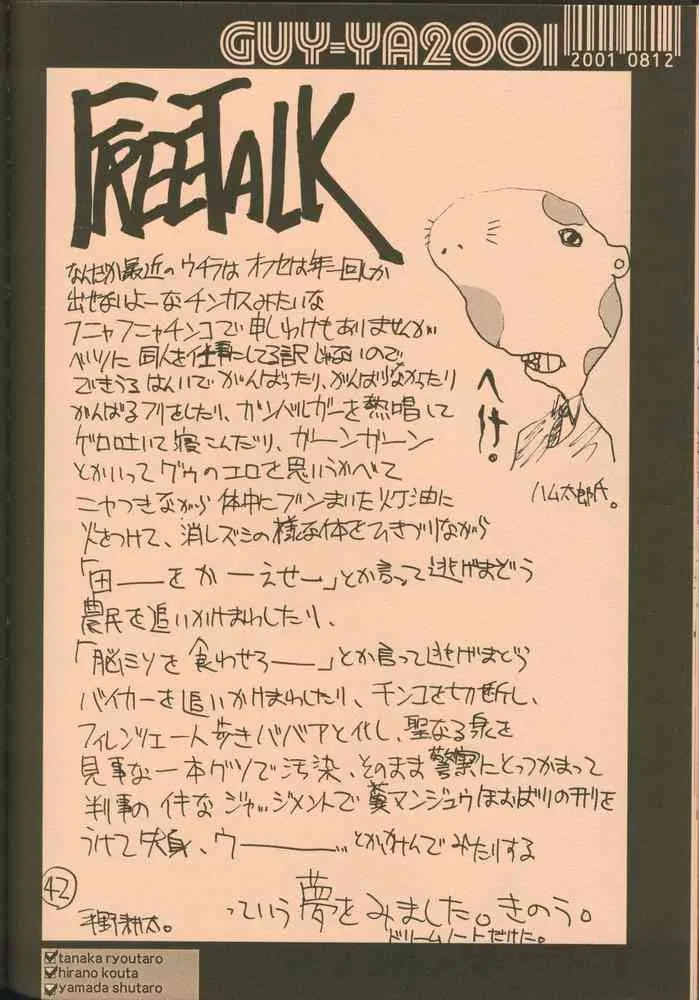 GUY-YA2001
2001 0812
FREETALK
なんだか最近のウチラはオフセは年一回しか
出せないよーなチンカスみたいな
フニャフニャチンコで申しわけもありませんが
べつに同人を仕事にしてる訳じゃないので
できうるはんいでがんばったり、がんばりなかったり
がんばるフリをしたり、ガンバルガーを熱唱して
ゲロ吐いて寝こんだり、ガーンガーン
とかいってグゥのエロを思いうかべて
ニヤつきながら体中にブンまいた灯油に
火をつけて、消しズミの様な体をひきづりながら
「田――をかーえせー」とか言って逃げまどう
農民を追いかけまわしたり、
「脳ミソを食わせろ――」とか言って逃げまどう
バイカーを追いかけまわしたり、チンコを切断し、
フィレンツェ一人歩きババアと化し、聖なる泉を
見事な一本グソで汚染、そのまま警察にとっつかまって
判事のイキなジャッジメントで糞マンジュウほおばりの刑を
うけて失身、ウ――――とかさけんでみたりする
っていう夢をみました。きのう。
ドリームノートだけに。
へけ。
ハム太郎氏。
42
平野耕太。
tanaka ryoutaro
hirano kouta
yamada shutaro